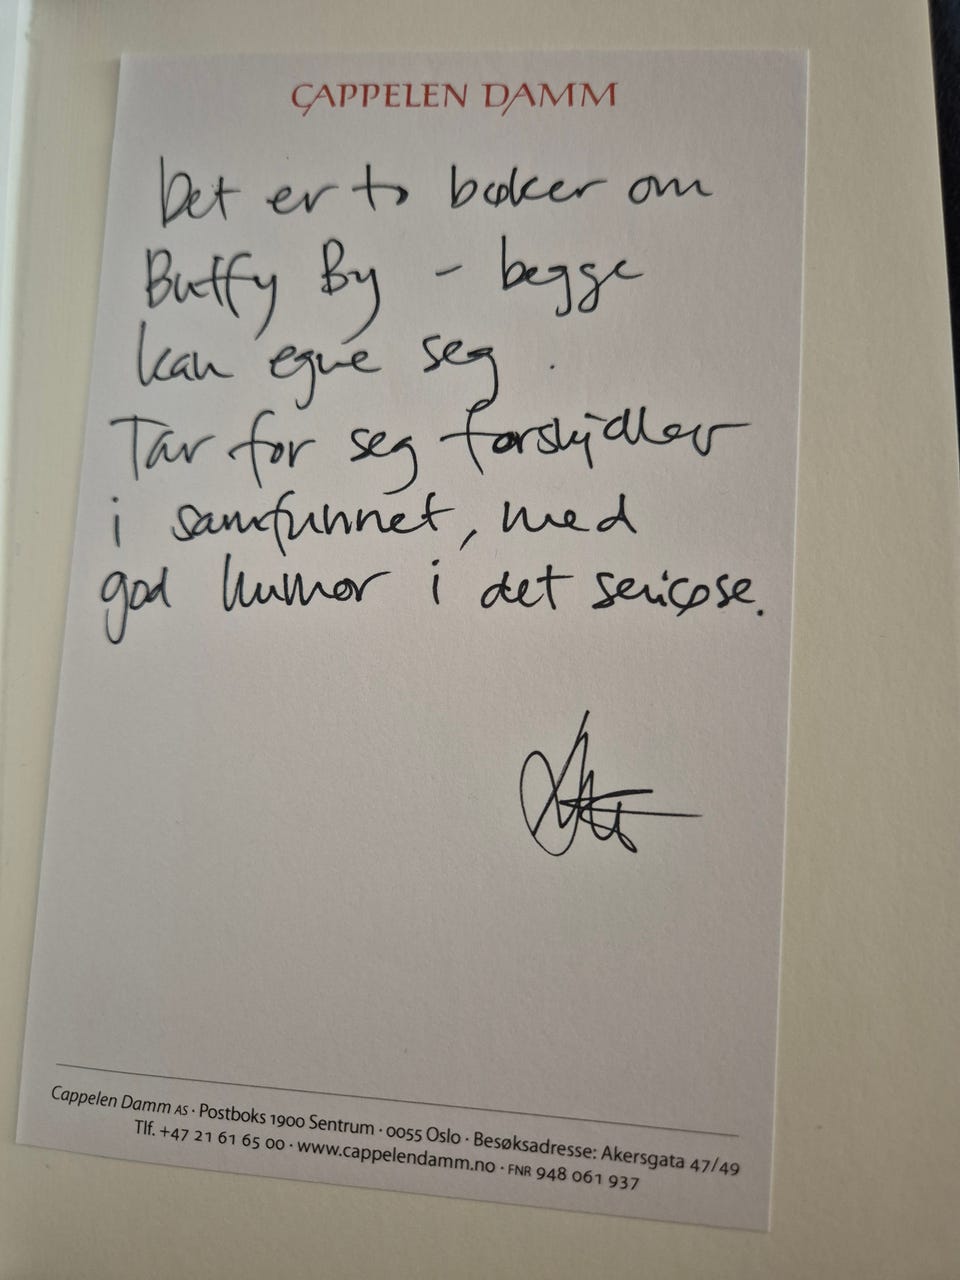 CAPPELEN DAMM
Det er to bøker om
Buffy By – begge
kan egne seg.
Tar for seg forskjeller
i samfunnet, med
god humor i det seriøse.
Cappelen Damm AS · Postboks 1900 Sentrum · 0055 Oslo · Besøksadresse: Akersgata 47/49
Tlf. +47 21 61 65 00 · www.cappelendamm.no · FNR 948 061 937